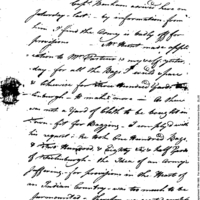 Capt Benham arrived here on
Saturday last. by information from
him I find the Army is badly off for
provisions Mr Hunt made appli-
cation to Mr Patterson & myself yester-
day for all the Bags I would spare
& likewise for Three Hundred Yards
to make more in. As there
was not a Yard of Cloth to be bought in
town, fit for Bagging. I complyed with
his request. he took One Hundred Bags,
& Three Hundred & Eighty Six & half Yards
of Osnaburgh. the Idea of an Army
suffering for provisions in the Heart of
an Indian Country, was too much to be